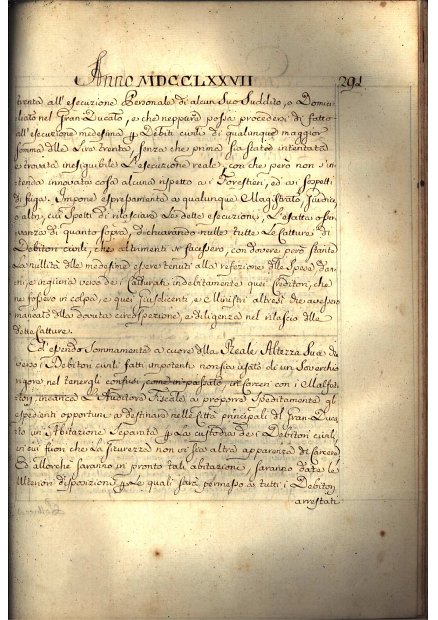 Anno MDCCLXXVII 291
trenta all' esecuzione Personale di alcun Suo Suddito, o Domici
liato nel Gran Ducato, e che neppure possa procedersi di fatto
all' esecuzione medesima p Debiti civili di qualunque maggior
somma dlle Lire trenta, senza che prima sia stata intentata
e trovata ineseguibile L'esecuzione reale, con che però non s'in
tenda innovata cosa alcuna rispetto a i Forestieri, ed a i sospetti
di fuga. Impone espressamente a qualunque Magistrato, Giudice
o altri, cui spetti di rilasciare Le dette esecuzioni, L'esatta osser
vanza di quanto sopra, dichiarando nulle tutte Le Catture di
Debitori civili, che altrimenti si facessero, con dovere però stante
La nullità dlle medesime essere tenuti alla refezione dlle Spese dan
ni, e ingiurie verso de i Catturati indebitamente quei Creditori, che
ne fossero in colpa, e quei Giusdicenti, e Ministri altresì che avessero
mancato dlla dovuta circospezione, e diligenza nel rilascio dlle
dette Catture.
Ed essendo Sommamente a cuore dlla Reale Altezza Sua che
verso i Debitori civili fatti impotenti non sia usato di un Soverchio
rigore nel tenergli confusi, come in passato, in Carceri con i Malfat
tori, incarica L'Auditore Fiscale a proporre Speditamente gli
espedienti opportuni a destinare nelle Città principali del Gran Duca
to un Abitazione Separata p La custodia de i Debitori civili,
in cui fuori che La sicurezza non vi sia altra apparenza di Carcere
Ed allorchè saranno in pronto tali abitazioni, saranno date Le
Ulteriori disposizioni p Le quali sarà permesso a tutti i Debitori
arrestati